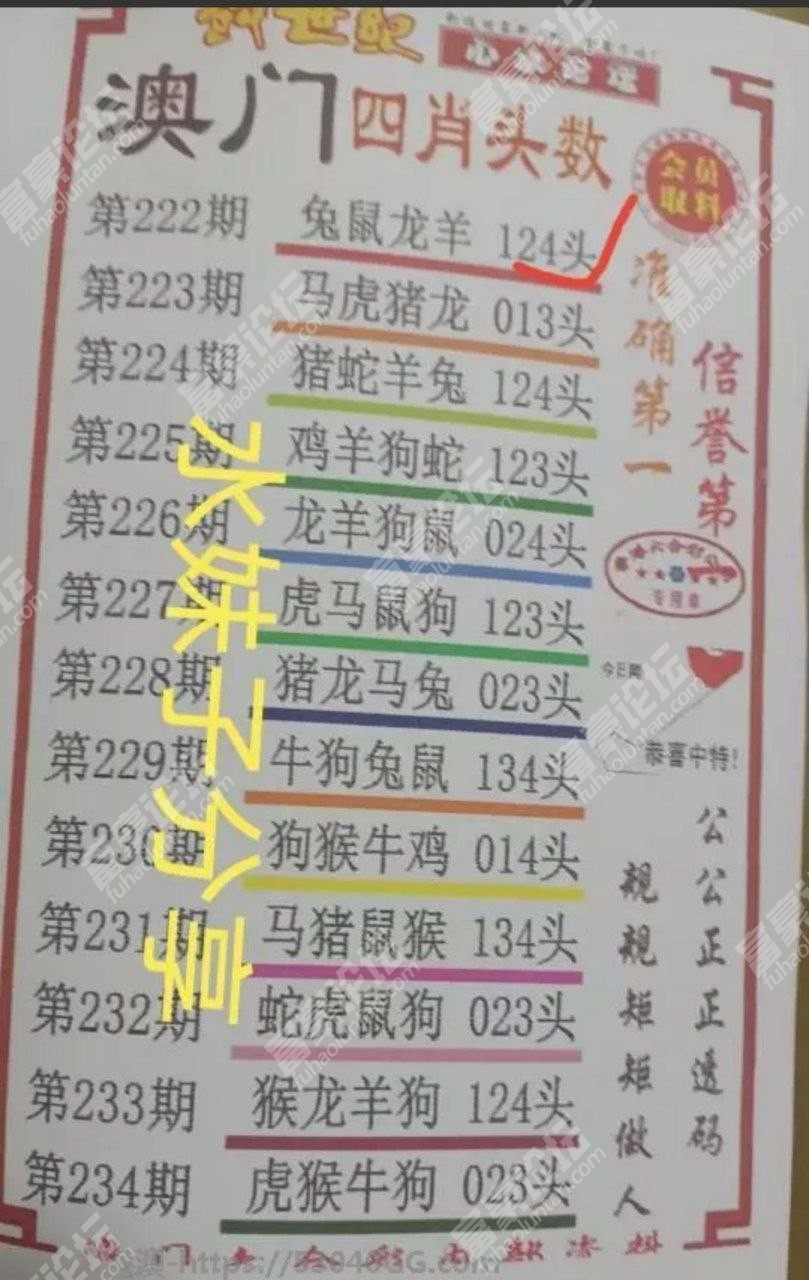 创世纪
心水论坛
澳门四肖头数
会员
取料
第222期 兔鼠龙羊 124头
第223期 马虎猪龙 013头
第224期 猪蛇羊兔 124头
第225期 鸡羊狗蛇 123头
第226期 龙羊狗鼠 024头
第227期 虎马鼠狗 123头
第228期 猪龙马兔 023头
第229期 牛狗兔鼠 134头
第230期 狗猴牛鸡 014头
第231期 马猪鼠猴 134头
第232期 蛇虎鼠狗 023头
第233期 猴龙羊狗 124头
第234期 虎猴牛狗 023头
准确第一
信誉第一
专用章
今日期
恭喜中特!
公公正正透码
规规矩矩做人
水妹子分享
富豪论坛
fuhaoluntan.com